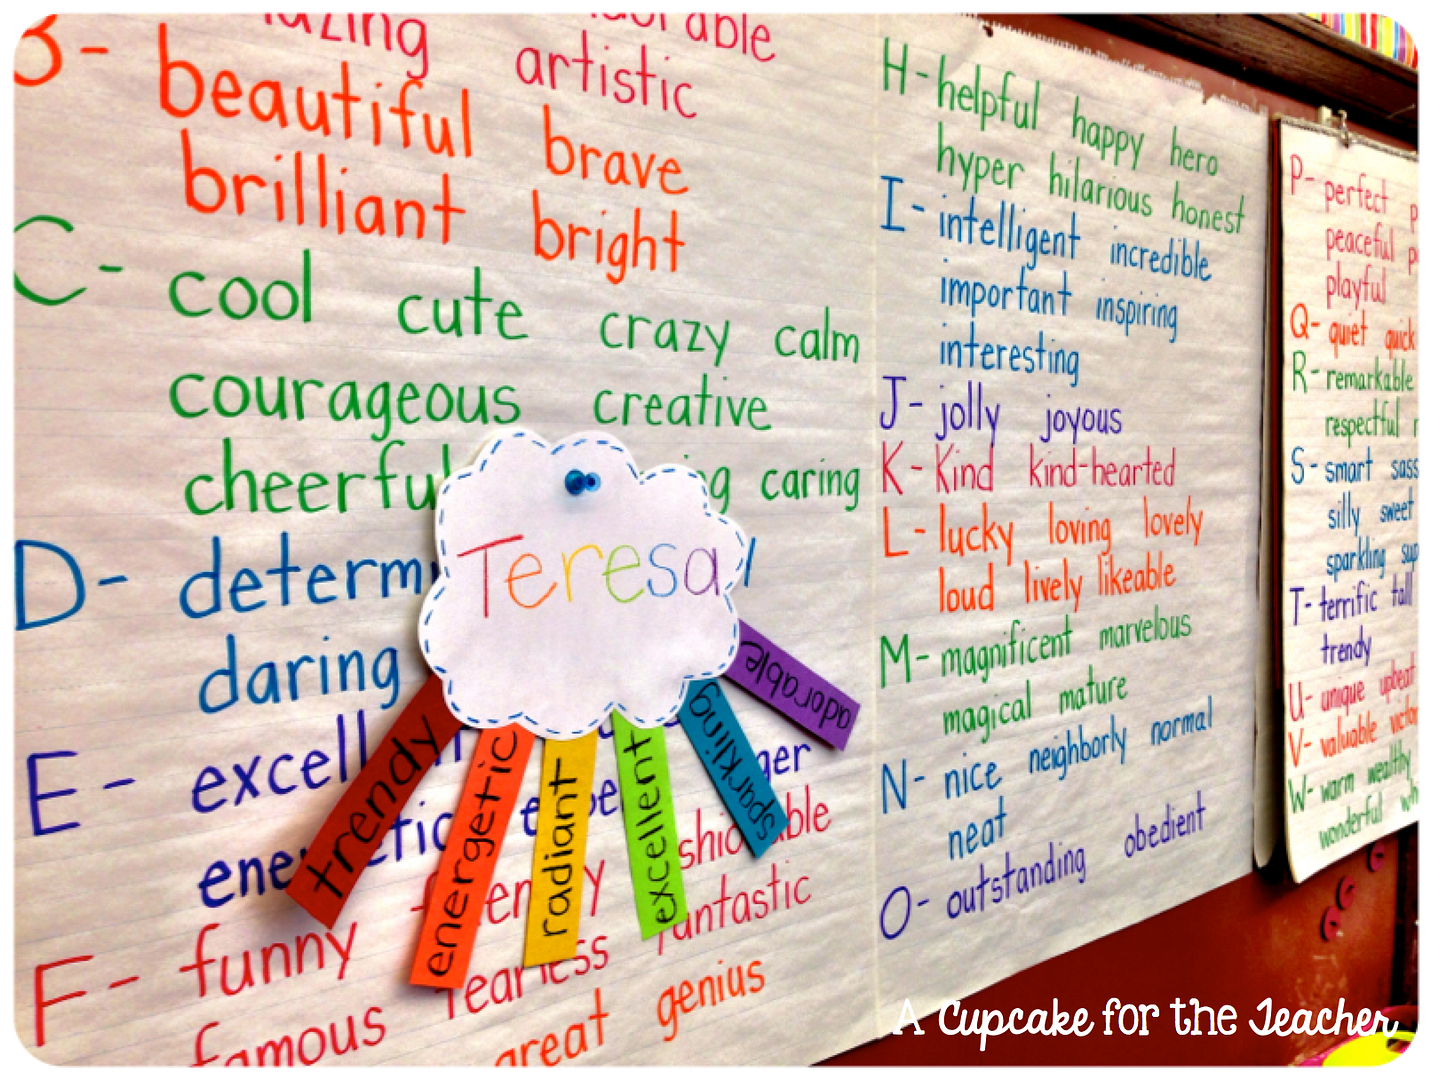 artistic
B- beautiful brave
brilliant bright
C- cool cute crazy calm
courageous creative
caring
D-
daring
E-
F- funny
famous fearless fantastic
great genius
Teresa
trendy
energetic
radiant
excellent
sparkling
adorable
H- helpful happy hero
hyper hilarious honest
I- intelligent incredible
important inspiring
interesting
J- jolly joyous
K- Kind kind-hearted
L- lucky loving lovely
loud lively likeable
M- magnificent marvelous
magical mature
N- nice neighborly normal
neat
O- outstanding obedient
P- perfect
peaceful
playful
Q- quiet quick
R- remarkable
respectful
S- smart
silly sweet
sparkling
T- terrific tall
trendy
U- unique upbeat
V- valuable
W- warm wealthy
wonderful
A Cupcake for the Teacher